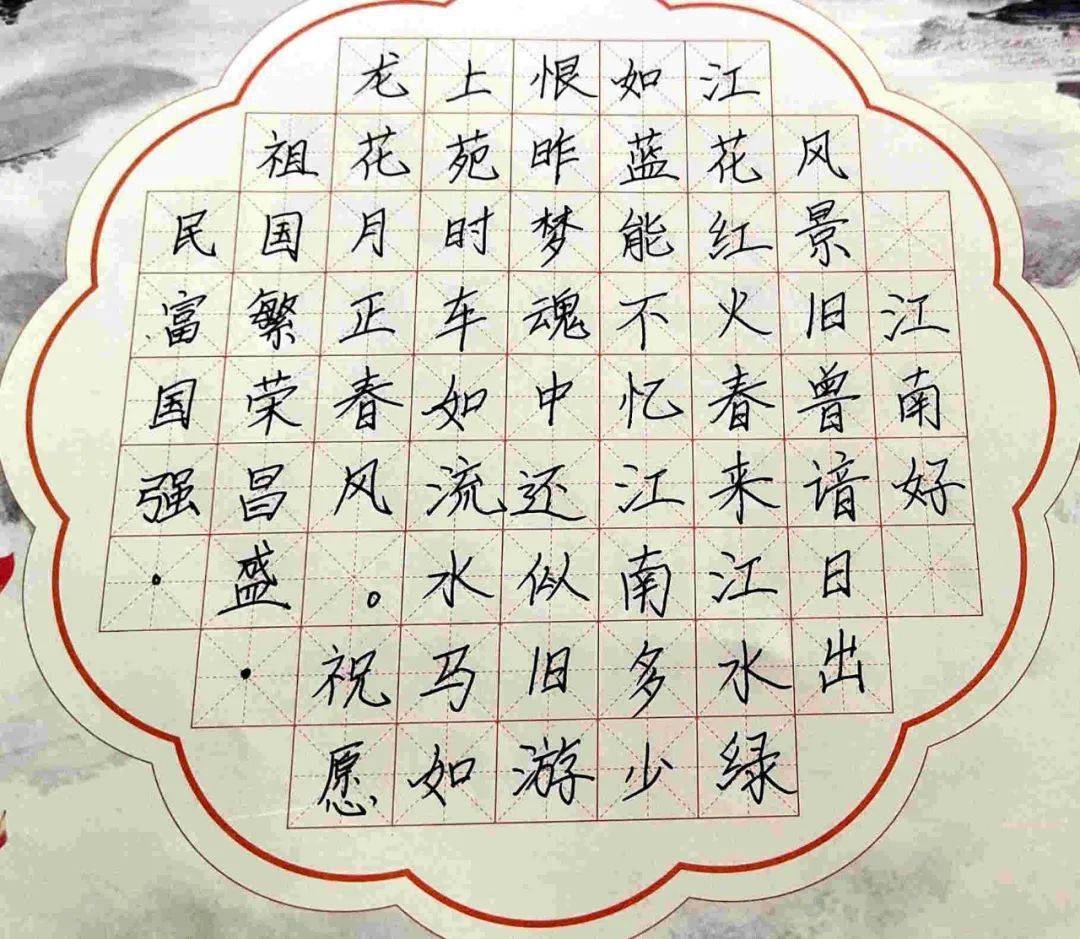 江南好
风景旧曾谙日出
江花红火春来江水绿
如蓝能不忆江南多少
恨昨梦魂中还似旧游
上苑时车如流水马如
龙花月正春风。祝愿
祖国繁荣昌盛·
民富国强·